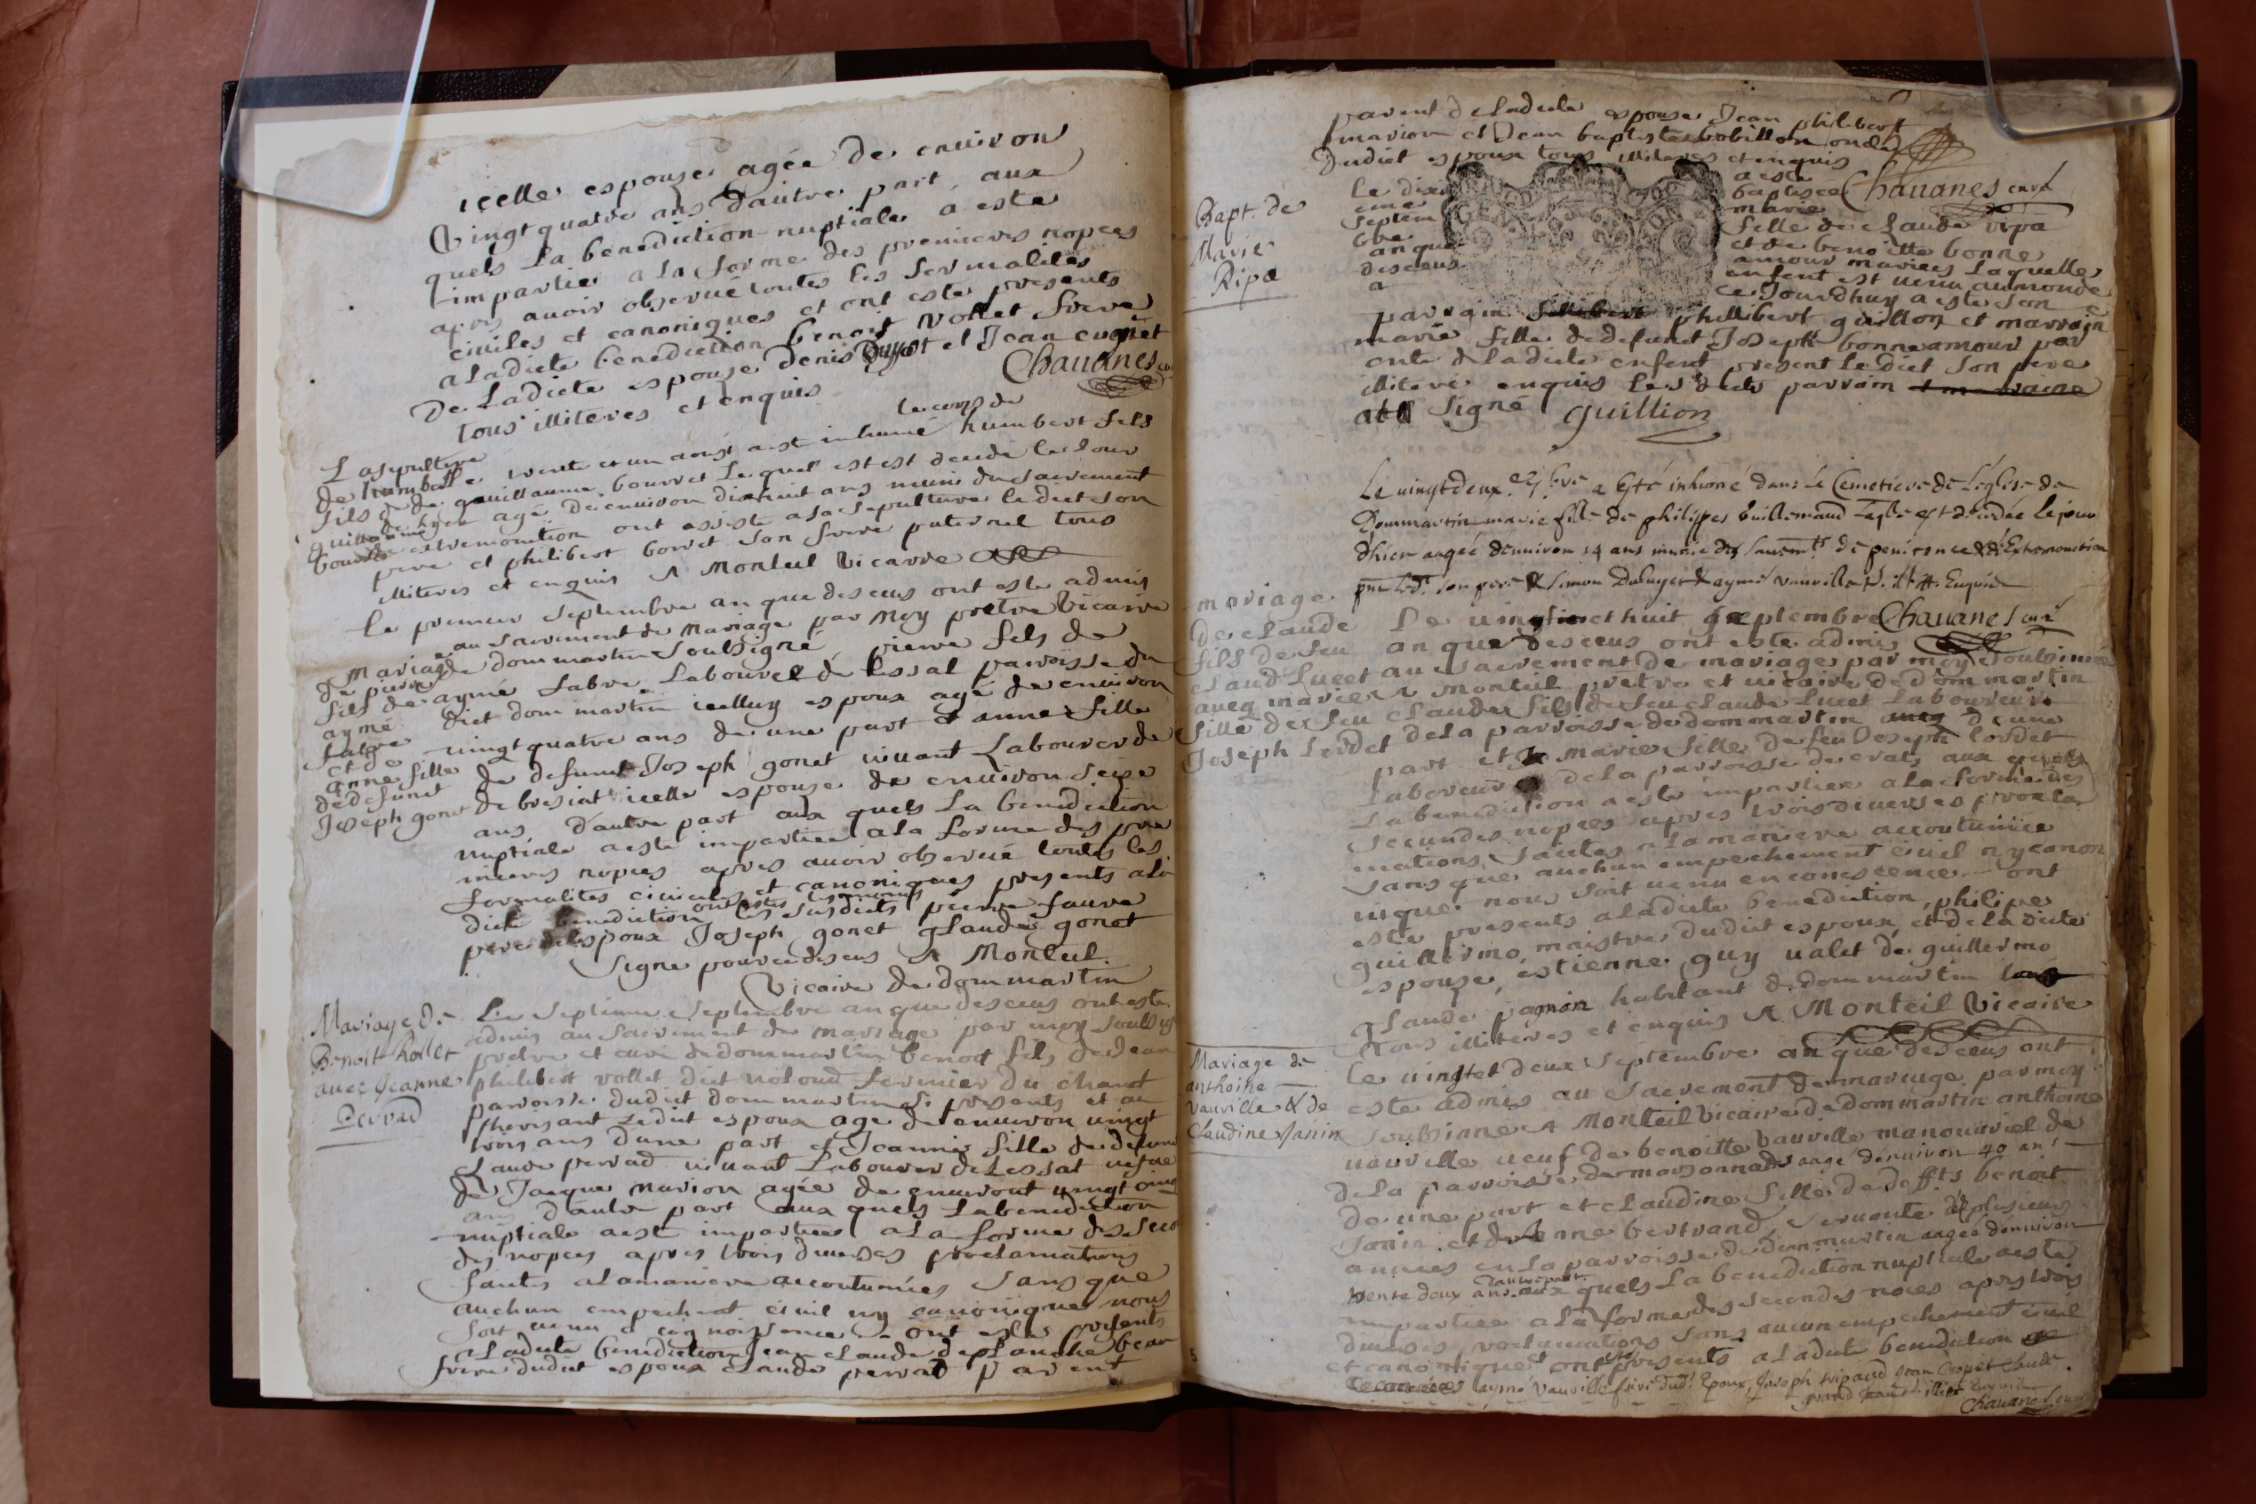 icelle espouse agée de environ
Vingt quatre ans d'autre part, aux
quels la benediction nuptiale a este
impartie a la forme des premieres nopces
apres avoir observé toutes les formalités
civiles et canoniques et ont este presents
a ladicte benediction benoist vollet frere
de Ladicte espouse denis et Jean cugnet
tous illiteres et enquis Chavanes
La sepulture
de humbert
fils de
guillaume
bourret
le corps de
trente et un aoust a est inhumé humbert fils
de guillaume bourret lequel est est decedé le jour
de hyer agé de environ dixhuit ans muni du sacrement
de extremonction ont assisté a sa sepulture le dict son
pere et philibert borret son frere paternel tous
illiteres et enquis A Monteil Vicaire
Le premier septembre an que dessus ont este admis
au sacrement de Mariage par Moy pretre Vicaire
de dommartin soubsigné, pierre fils de
aymé fabre Laboureur de Lessal paroisse du
dict dommartin icelluy espoux agé de environ
vingt quatre ans de une part et anne fille
de defunct Joseph gonet vivant Laboureur de
de bresiat icelle espouse de environ seize
ans, d'autre part aux quels la benediction
nuptiale a este impartie a la forme des pre
mieres nopces apres avoir observé toutes les
formalites civiles et canoniques presents a la
dicte benediction les susdicts pierre faure
pere de lespoux Joseph gonet glaude gonet
Signe pour ce dessus A Monteil
Vicaire de dommartin
Mariage
de pierre
fils de
aymé
fabre
et de
anne fille
de defunct
Joseph gonet
Mariage de
Benoit Vollet
avec Jeanne
Perrad
Le septieme septembre an que dessus ont este
admis au sacrement de mariage par moy soubsig
pretre et curé de dommartin benoit fils de Jean
philibert vollet dict fermier du
paroisse dudict dommartin presents et au
thorisant ledict espoux agé de environ vingt
trois ans d'une part et Jeanne fille de defunct
Claude perrad vivant Laboureur de Lessat vefve
de Jacque marion agée de environ vingt cinq
ans d'autre part aux quels la benediction
nuptiale a est impartie a la forme des secon
des nopces apres trois diverses proclamations
faites a la maniere accoutumées sans que
auchun empechemt civil ny canonique nous
soit venu a cognoissance ont este presents
a ladicte benediction Jean claude deplanche beau
frere dudict espoux claude perrad parent
parent de ladicte espouse Jean philibert
marion et Jean baptiste bobillon oncle
dudict espoux tous illiteres et enquis
Chavanes curé
Bapt. de
Marie
Ripa
Le dixi
eme
septem
bre
an que
dessus
a
a este
baptisée
marie
fille de claude ripa
et de benoitte bonne
amour mariees laquelle
enfent est venu au monde
ce jourdhuy a este son
parrain phillibert guillon et marrain
marie fille de defunct Joseph bonneamour par
ente de ladicte enfent present le dict son pere
illiteré enquis les dicts parrain
a signé guillion
Le vingtdeux 7bre a été inhumé dans le Cemetiere de l'église de
Dommartin marie fille de philippes guillemaud laqlle est décedée le jour
d'hier aagée denviron 14 ans munie des sacremts de penitence & de Extremonction
pnts led. son pere & simon Duluyer & aymé vauville illit. Enquis
Chavanes curé
mariage
de claude
fils de feu
claud Lucet
aveq marie
fille de feu
Joseph Lordet
Le vingt et huit septembre
an que dessus ont este admis
au sacrement de mariage par moy soubsinné
A Monteil pretre et vicaire de dommartin
claude fils de feu claude Lucet laboureur
de la parroisse de dommartin de une
part et marie fille de feu Joseph lordet
Laboreur de la parroisse de cras aux quels
la benediction a este impartie a la forme des
secondes nopces apres trois diverses procla
mations faites a la maniere accoutumée
sans que auchun empechement civil ny canon
nique nous soit venu en conescence ont
este presents a ladicte benediction, philipe
guillermo, maistre dudict espoux, et de la dicte
espouse, estienne guy valet de guillermo
glaude pagnon habitant de dommartin
tous illiteres et enquis A Monteil Vicaire
Mariage de
anthoine
Vauville & de
Claudine Janin
Le vingt et deux septembre an que dessus ont
este admis au sacrement de mariage par moy
soubsinné A Monteil Vicaire de dommartin anthoine
vauville veuf de benoitte Vauville manouvriel de
de la parroisse de marsonnas aagé denviron 40 ans
de une part et claudine fille de deffts benoit
Janin et de anne bertrand, servante de plusieurs
annees en la parroisse de dommartin aagée denviron
trente deux ans d'autre part aux quels la benediction nuptiale a este
impartiee a la forme des secondes noces apres trois
diverses proclamations sans aucun empechement civil
et canonique ont este presents a ladicte benediction
aymé Vauville frere dud. Epoux, Joseph tripaud Jean Cropet claude
Chavanes curé